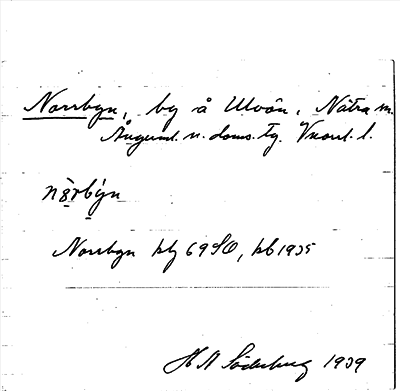 Norrbyn, by å Ulvön, Nätra sn.
Ångerml. n. doms. tg. Vnorrl. l.
nörbýn
Norrbyn hfg 69 SO, kb 1935
H A Söderberg 1939